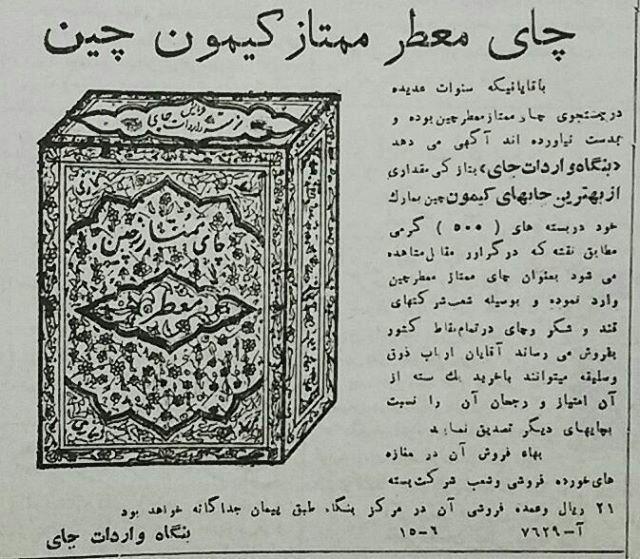 چای معطر ممتاز کیمون چین
باقایانیکه سنوات عدیده
در جستجوی چای ممتاز معطر چین بوده و
بدست نیاورده اند آگهی می دهد
«بنگاه واردات چای» بتازگی مقداری
از بهترین چایهای کیمون چین بمارک
خود در بسته های (۵۰۰) گرمی
مطابق نقشه که در گراور مقابل مشاهده
می شود بعنوان چای ممتاز معطر چین
وارد نموده و بوسیله شعب شرکتهای
قند و شکر و چای در تمام نقاط کشور
بفروش می رساند آقایان ارباب ذوق
وسلیقه میتوانند باخرید یک بسته از
آن امتیاز و رجحان آن را نسبت
بچایهای دیگر تصدیق نمایند
بهاء فروش آن در مغازه
های خورده فروشی وشعب شرکت بسته
۲۱ ریال وعمده فروشی آن در مرکز بنگاه طبق پیمان جداگانه خواهد بود
آ-۷۶۲۹ ۶-۱۵
بنگاه واردات چای
واردات چای
چای ممتاز چین
معطر